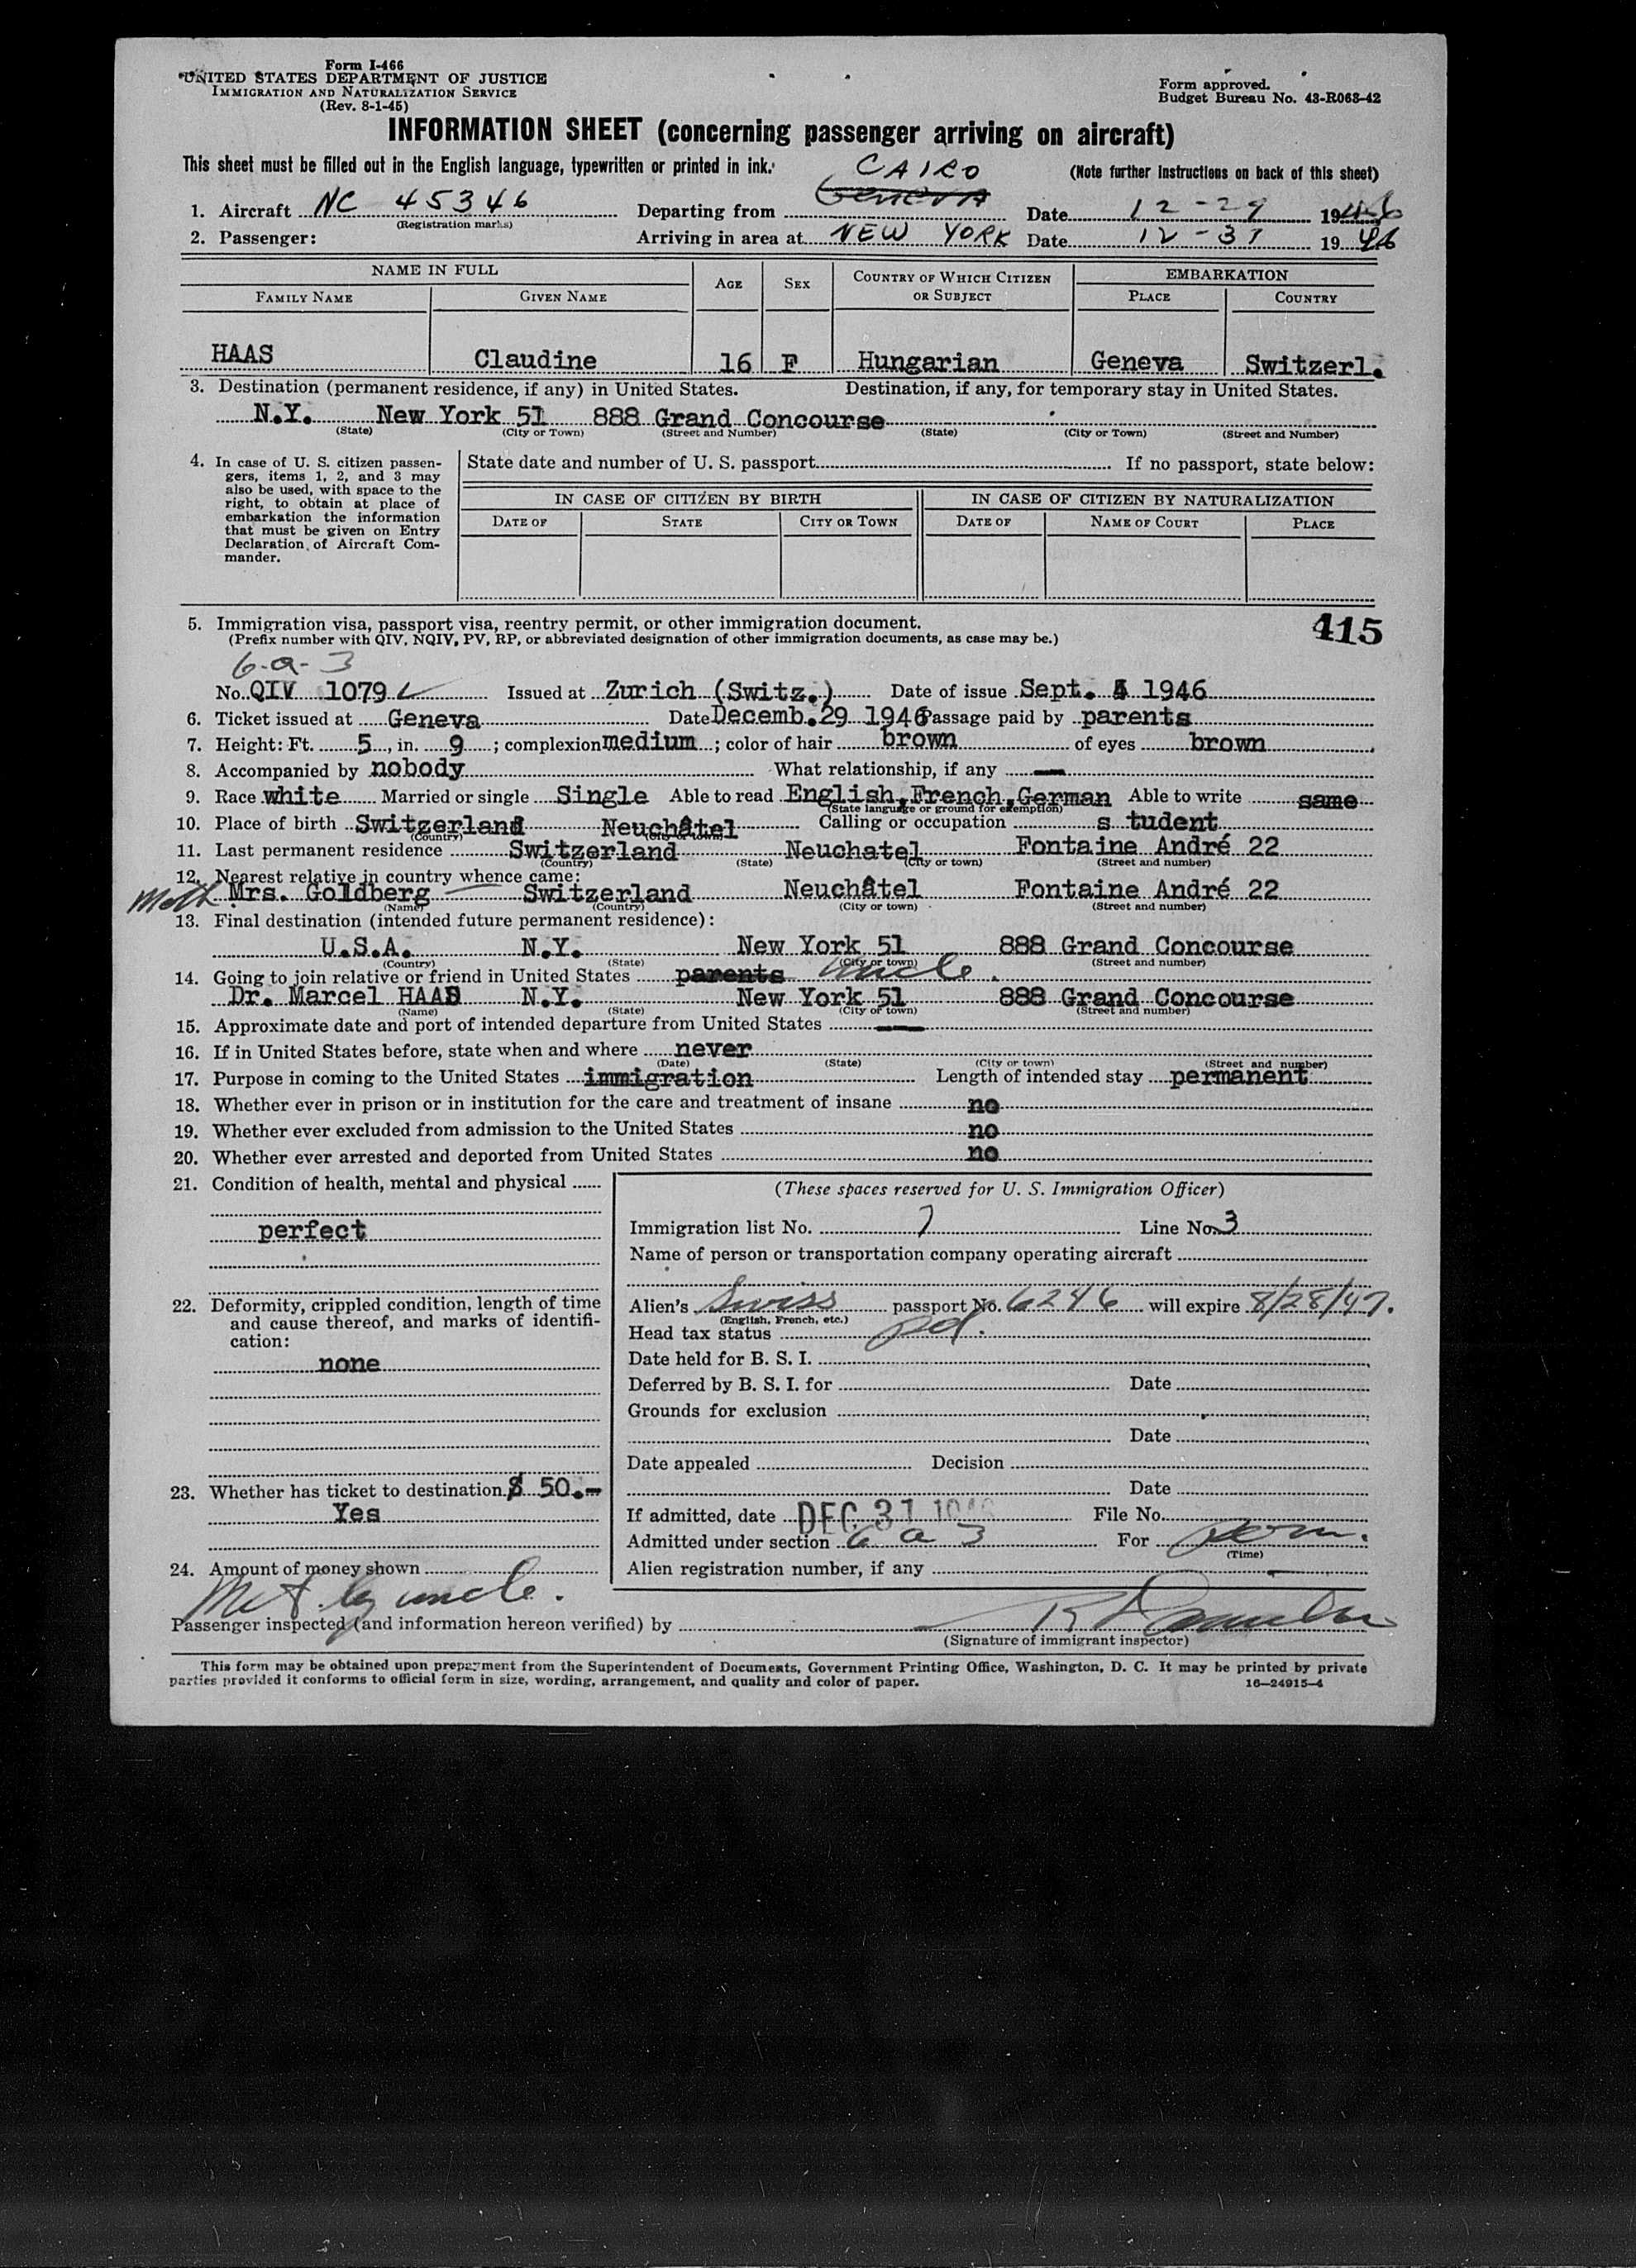 Form I-466
UNITED STATES DEPARTMENT OF JUSTICE
IMMIGRATION AND NATURALIZATION SERVICE
(Rev. 8-1-45)
Form approved.
Budget Bureau No. 43-R063-42
INFORMATION SHEET (concerning passenger arriving on aircraft)
This sheet must be filled out in the English language, typewritten or printed in ink.
(Note further instructions on back of this sheet)
CAIRO
1. Aircraft NC 45346 Departing from Geneva Date 12-29 1946
(Registration marks)
2. Passenger: Arriving in area at NEW YORK Date 12-31 1946
NAME IN FULL AGE SEX COUNTRY OF WHICH CITIZEN OR SUBJECT EMBARKATION
FAMILY NAME GIVEN NAME PLACE COUNTRY
HAAS Claudine 16 F Hungarian Geneva Switzerl.
3. Destination (permanent residence, if any) in United States. Destination, if any, for temporary stay in United States.
N.Y. New York 51 888 Grand Concourse
(State) (City or Town) (Street and Number) (State) (City or Town) (Street and Number)
4. In case of U. S. citizen passengers, items 1, 2, and 3 may also be used, with space to the right, to obtain at place of embarkation the information that must be given on Entry Declaration of Aircraft Commander.
State date and number of U. S. passport If no passport, state below:
IN CASE OF CITIZEN BY BIRTH IN CASE OF CITIZEN BY NATURALIZATION
DATE OF STATE CITY OR TOWN DATE OF NAME OF COURT PLACE
5. Immigration visa, passport visa, reentry permit, or other immigration document. 415
(Prefix number with QIV, NQIV, PV, RP, or abbreviated designation of other immigration documents, as case may be.)
6-a-3
No. QIV 1079 Issued at Zurich (Switz.) Date of issue Sept. 4 1946
6. Ticket issued at Geneva Date Decemb. 29 1946 Passage paid by parents
7. Height: Ft. 5, in. 9; complexion medium; color of hair brown of eyes brown
8. Accompanied by nobody What relationship, if any —
9. Race white Married or single Single Able to read English, French, German Able to write same
(State language or ground for exemption)
10. Place of birth Switzerland Neuchâtel Calling or occupation s tudent
(Country) (City or town)
11. Last permanent residence Switzerland Neuchatel Fontaine André 22
(Country) (State) (City or town) (Street and number)
12. Nearest relative in country whence came:
Moth Mrs. Goldberg Switzerland Neuchâtel Fontaine André 22
(Name) (Country) (City or town) (Street and number)
13. Final destination (intended future permanent residence):
U.S.A. N.Y. New York 51 888 Grand Concourse
(Country) (State) (City or town) (Street and number)
14. Going to join relative or friend in United States parents uncle.
Dr. Marcel HAAS N.Y. New York 51 888 Grand Concourse
(Name) (State) (City or town) (Street and number)
15. Approximate date and port of intended departure from United States —
16. If in United States before, state when and where never
(Date) (State) (City or town) (Street and number)
17. Purpose in coming to the United States immigration Length of intended stay permanent
18. Whether ever in prison or in institution for the care and treatment of insane no
19. Whether ever excluded from admission to the United States no
20. Whether ever arrested and deported from United States no
21. Condition of health, mental and physical
perfect
22. Deformity, crippled condition, length of time and cause thereof, and marks of identification:
none
23. Whether has ticket to destination $ 50.-
Yes
24. Amount of money shown
Met by uncle.
(These spaces reserved for U. S. Immigration Officer)
Immigration list No. 7 Line No. 3
Name of person or transportation company operating aircraft
Alien's Swiss passport No. 6246 will expire 8/28/47.
(English, French, etc.)
Head tax status pd.
Date held for B. S. I.
Deferred by B. S. I. for Date
Grounds for exclusion
Date
Date appealed Decision
Date
If admitted, date DEC 31 1946 File No.
Admitted under section 6 a 3 For perm.
(Time)
Alien registration number, if any
Passenger inspected (and information hereon verified) by
(Signature of immigrant inspector)
This form may be obtained upon prepayment from the Superintendent of Documents, Government Printing Office, Washington, D. C. It may be printed by private
parties provided it conforms to official form in size, wording, arrangement, and quality and color of paper. 16—24915-4